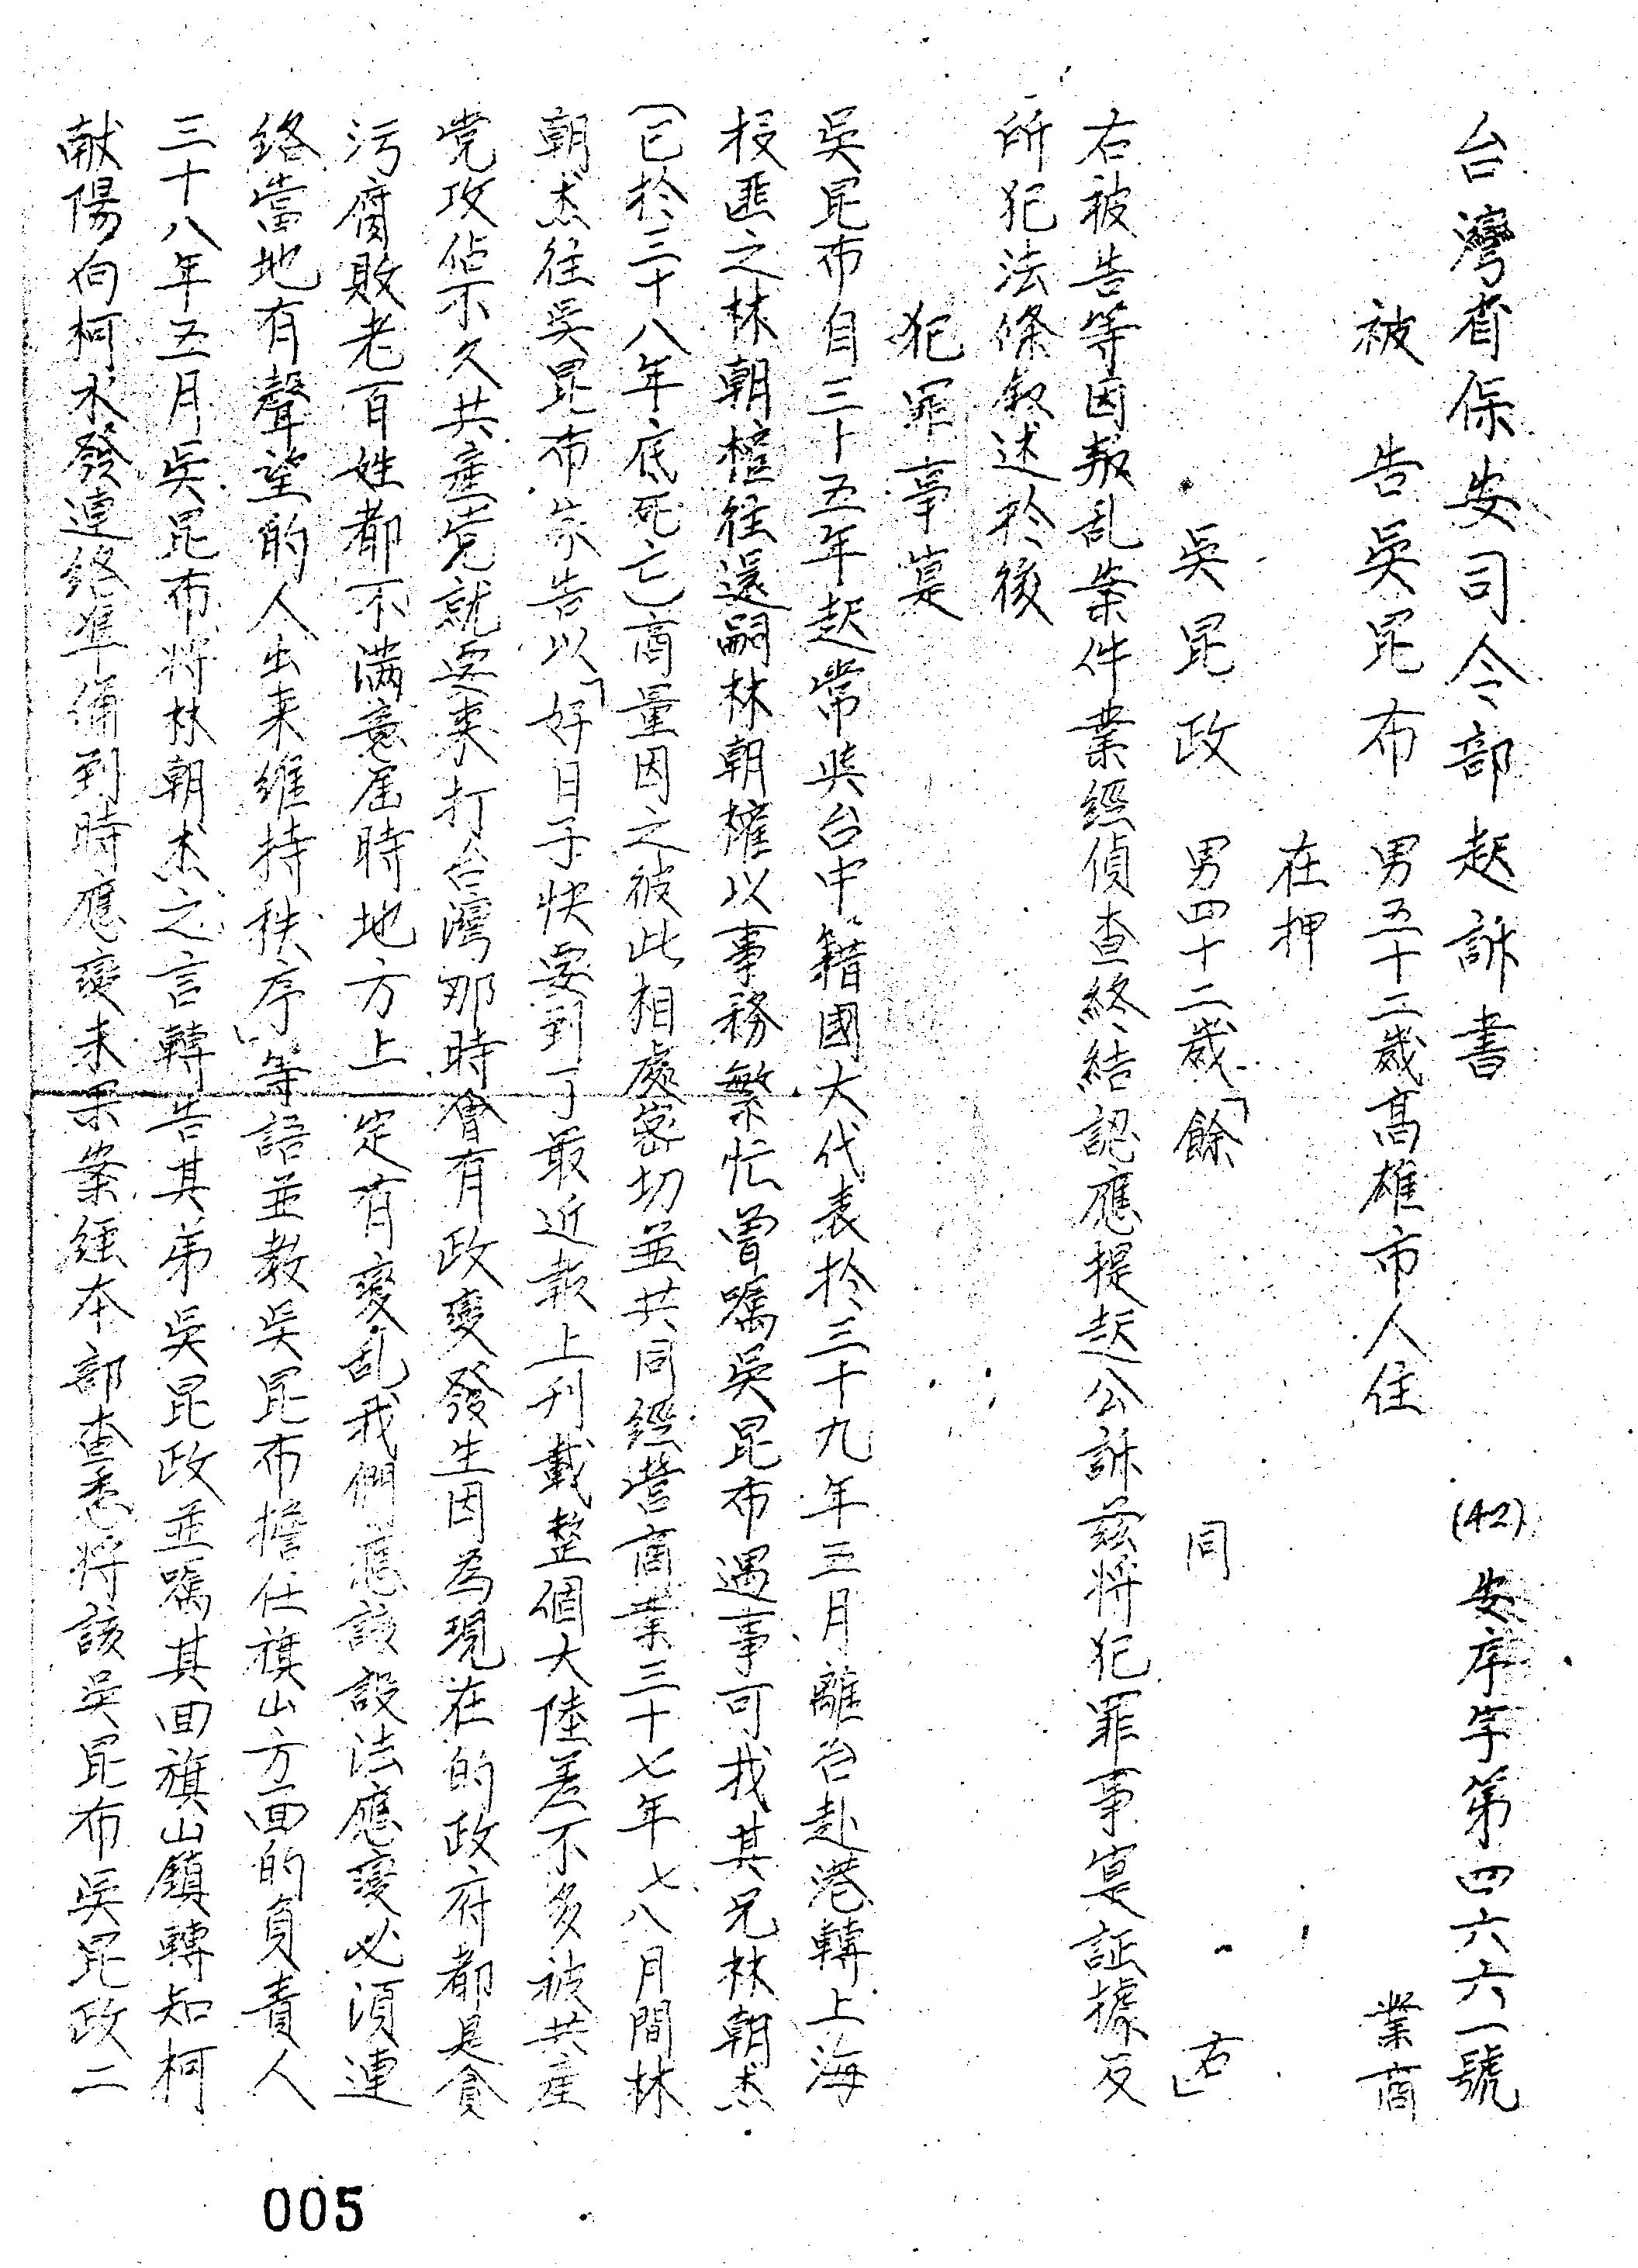 台灣省保安司令部起訴書 (42)安序字第四六六一號
被告吳昆布 男五十二歲高雄市人住 業商
在押
吳昆政 男四十二歲「餘 同 右」
右被告等因叛乱案件業經偵查終結認應提起公訴茲將犯罪事實証據及
所犯法條敘述於後
犯罪事實
吳昆布自三十五年起常與台中籍國大代表於三十九年三月離台赴港轉上海
投匪之林朝權往還嗣林朝權以事務繁忙曾囑吳昆布遇事可找其兄林朝杰
(已於三十八年底死亡)商量因之彼此相處密切並共同經營商業三十七年七八月間林
朝杰往吳昆布家告以「好日子快要到了最近報上刊載整個大陸差不多被共產
党攻佔不久共產党就要來打台灣那時會有政變發生因為現在的政府都是貪
污腐敗老百姓都不滿意屆時地方上一定有變乱我們應該設法應變必須連
絡當地有聲望的人出来維持秩序」等語並教吳昆布擔任旗山方面的負責人
三十八年五月吳昆布將林朝杰之言轉告其弟吳昆政並囑其回旗山鎮轉知柯
献陽向柯水發連絡準備到時應變未果案經本部查悉將該吳昆布吳昆政二
005